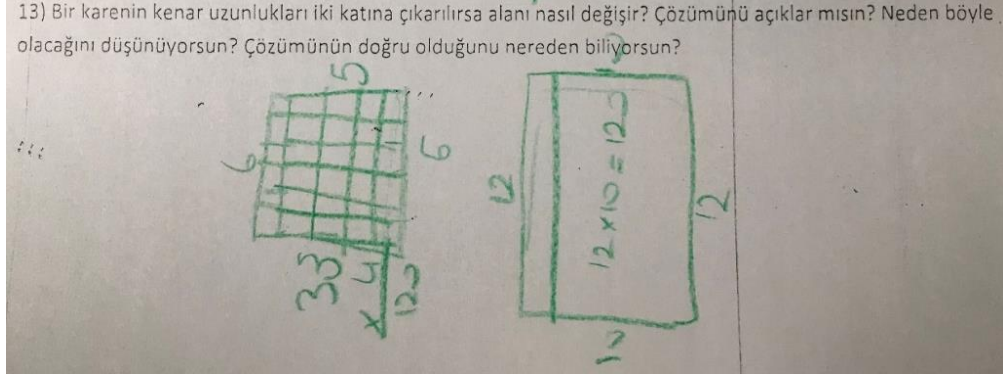 13) Bir karenin kenar uzunlukları iki katına çıkarılırsa alanı nasıl değişir? Çözümünü açıklar mısın? Neden böyle
olacağını düşünüyorsun? Çözümünün doğru olduğunu nereden biliyorsun?
5
6
6
x 4
120
12
10
12 x 10 = 120
12
10